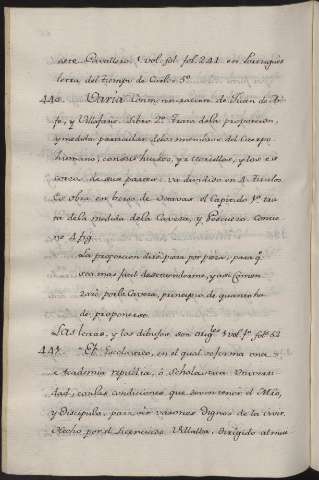 este Cavallero. 1 vol. fol. fol. 241. en Portugues
letra del tiempo de Carlos 5º
440. Varia Conmensuracion de Juan de Ar-
fe, y Villafañe. Libro 2º Trata de la proporcion,
y medida particular de los miembros del Cuerpo
humano, con sus huesos, y morcillos, y los es-
corzos de sus partes. va dividido en 4 Titulos
Es obra en berso de octavas. el Capitulo 1º tra-
ta de la medida de la Caveza, y Pescuezo. Contie-
ne 4 fig.
La proporcion diré pieza por pieza, para q.
sea mas facil de
y asi Comen-
zaré, por la Caveza, principio de quanto ha
de proponerse.
Las letras, y los dibujos, son orig.les 1 vol. fº fol.s 52
441. El Escolastico, en el qual se forma una
Academia republica, ò Scholastica Universi-
dad, con las condiciones que deven tener el Mro,
y Discipulo, para ser varones dignos de la
Hecho por el Licenciado Villalon, dirigido al mui